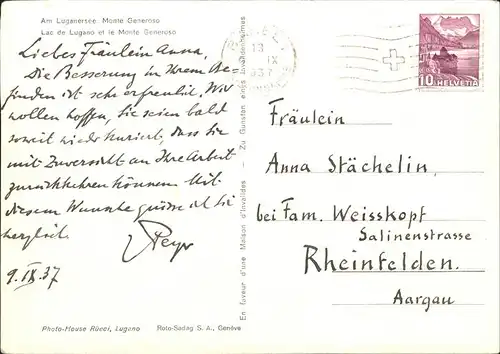 Am Luganersee. Monte Generoso
Lac de Lugano et le Monte Generoso
Liebes Fräulein Anna,
Die Besserung in Ihrem Be-
finden ist sehr erfreulich. Wir
wollen hoffen, Sie seien bald
soweit wieder kuriert, dass Sie
mit Zuversicht an Ihre Arbeit
zurückkehren können. Mit
diesem Wunsche grüsse ich Sie
herzlich.
9. IX. 37
Photo-House Rüedi, Lugano
Roto-Sadag S. A., Genève
En faveur d'une Maison d'Invalides - Zu Gunsten eines Invalidenheimes
13
IX
1937
10 HELVETIA
Fräulein
Anna Stächelin,
bei Fam. Weisskopf
Salinenstrasse
Rheinfelden.
Aargau